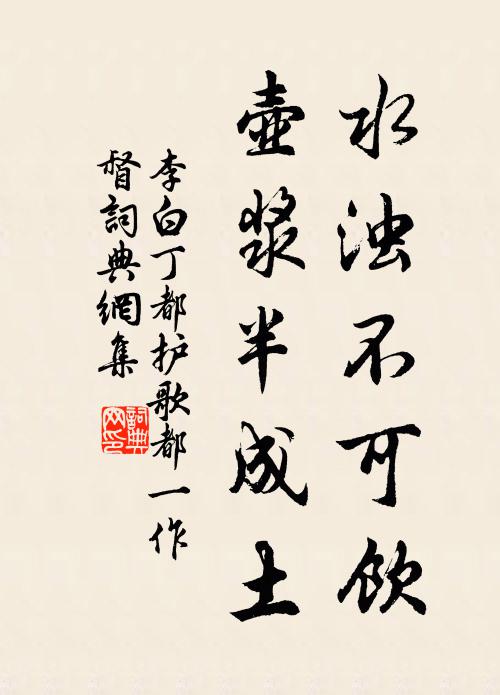 水浊不可饮
壶浆半成土
李白丁都护歌都一作
督詞典網集
詞典
网印